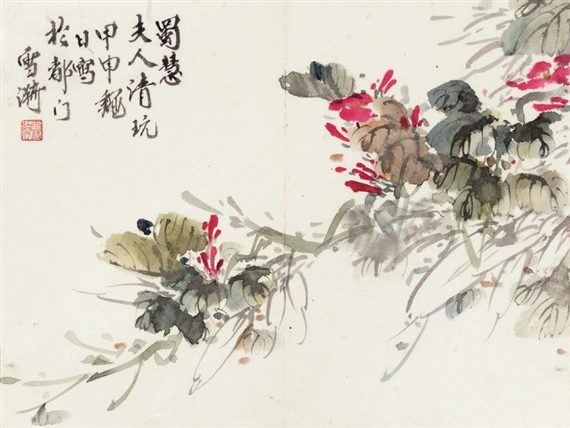 蜀慧
夫人清玩
甲申魏
日写
於都门
雪涛